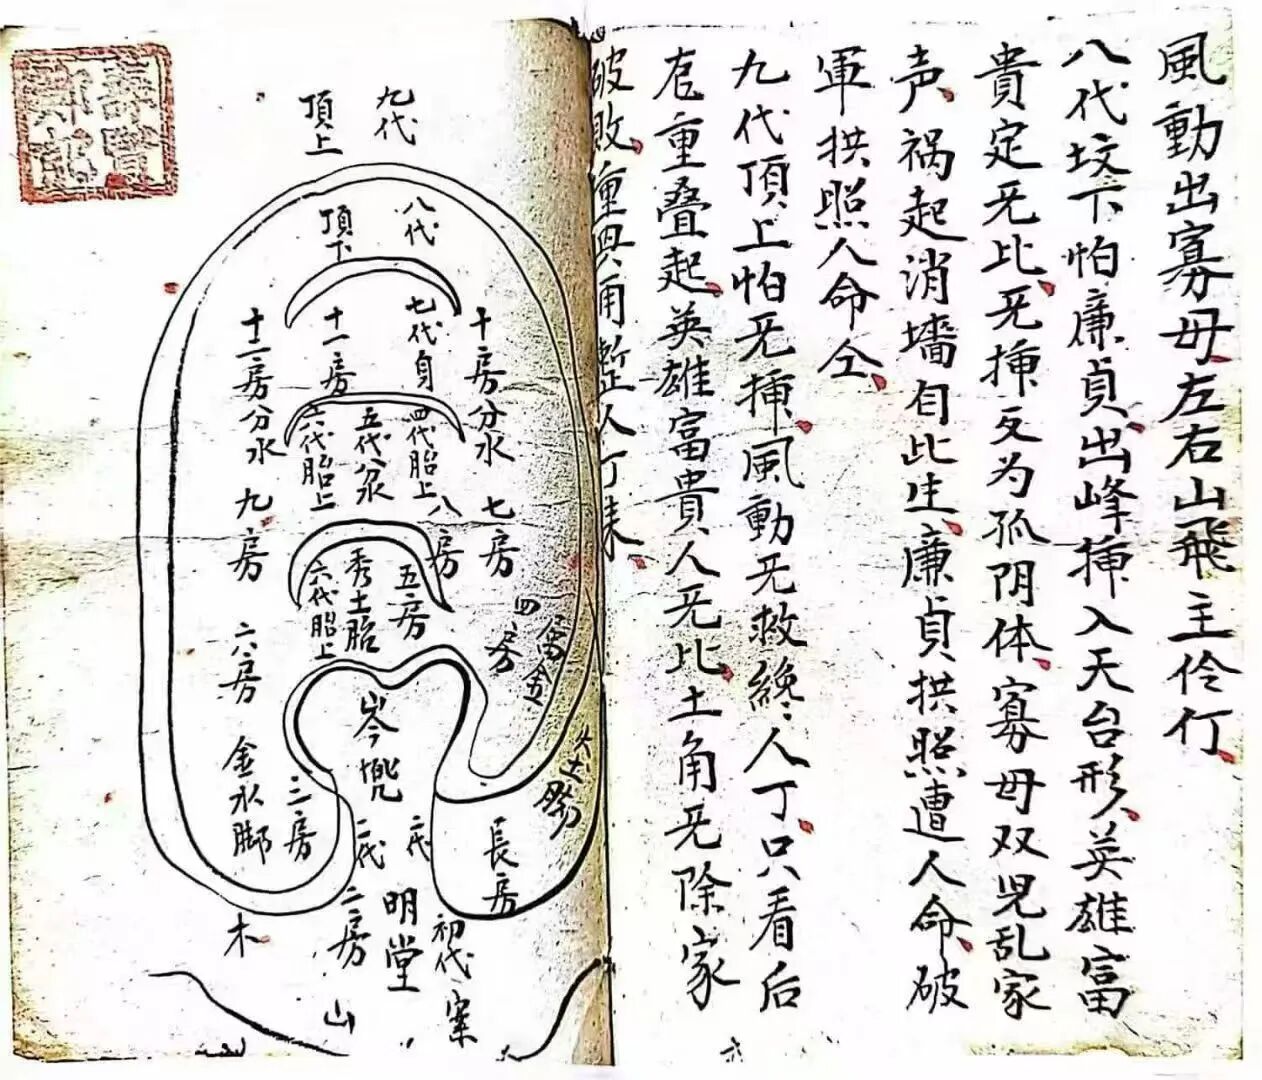 風動出寡母左右山飛主伶仃
八代坟下怕廉貞出峰揷入天台形英雄富
貴定旡比旡揷反为孤阴体寡母双児乱家
声祸起消墻自此生廉貞拱照遭人命破
軍拱照人命仝
九代頂上怕旡揷風動旡救絶人丁只看后
扆重叠起英雄富貴人旡比土角旡除家
破敗重興甬塹人丁
九代
頂上
八代
頂下
十房分水
七代自
十一房
十二房分水
四代胎上
五代分水
六代胎上
七房
八房
九房
五房
秀土胎
六代胎上
四房
富金
六房
岑兠
火土勝
金水脚
三房
二代
二代
長房
二房
明堂
初代
案
山
木